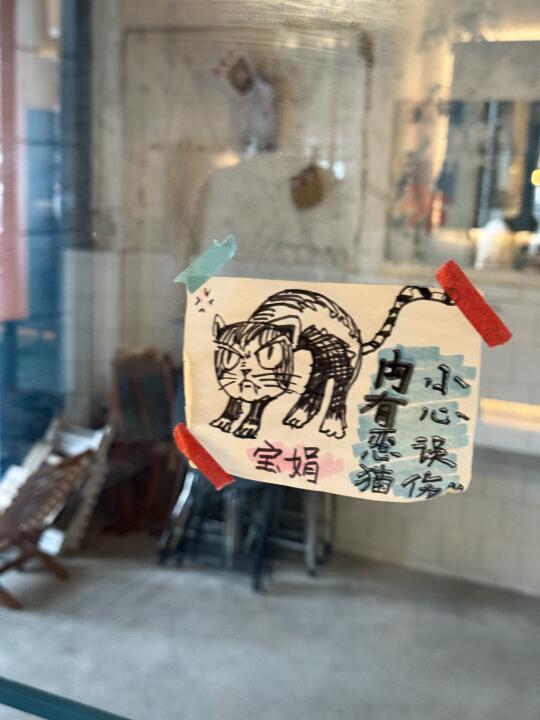 内有恶猫
小心误伤~
宝娟